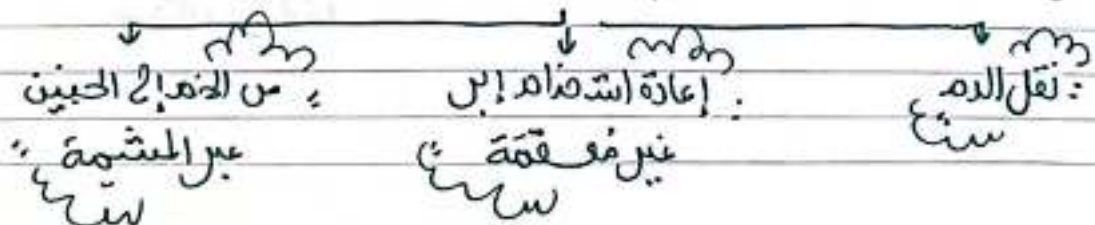 نقل الدم
إعادة استخدام إبر
غير معقمة
من الأم إلى الجنين
عبر المشيمة